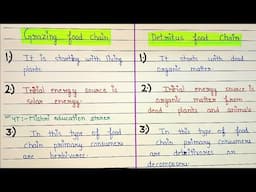 Grazing food chain
1) It is starting with living
plants.
2) Initial energy source is
solar energy.
YT:- Mishri education stores
3) In this type of food
chain primary consumers
are herbivores.
Detritus food chain
1) It starts with dead
organic matter.
2) Initial energy source is
organic matter from
dead plants and animals.
3) In this type of food
chain primary consumers
are detritivores or
decomposers